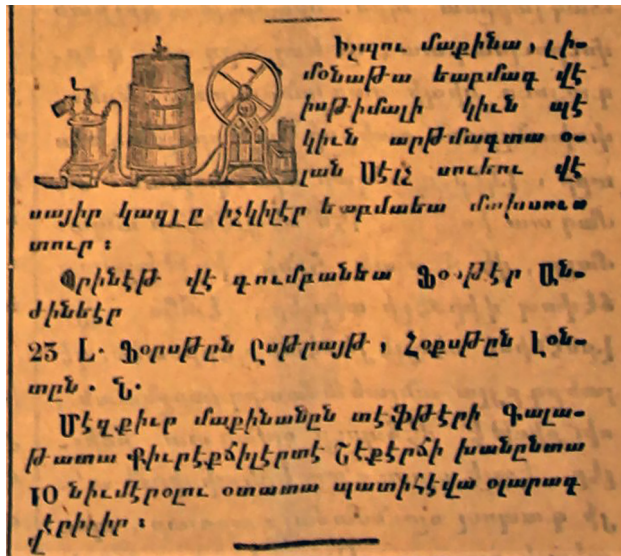 Իշպու մաքինա, լի-
մօնաթա եաբմագ վէ
իսթիմալի կիւն պէ
կիւն արթմագտա օ-
լան Սէլչ սուեու վէ
սայիր կազլը իչկիլէր եաբմաեա մախսուս
տուր :
Պրինէթ վէ գումբանեա Ֆօսթէր Ան-
ժինեէր
23 Լ. Ֆօրսթըն Ըսթրայթ, Հօքսթըն Լօն-
տըն. Ն.
Մէզքիւր մաքինանըն տէֆթէրի Գալա-
թատա Քիւրէքճիլէրտէ Շէքէրճի խանընտա
10 նիւմէրօլու օտատա պատիհէվա օլարագ
վէրիլիր :